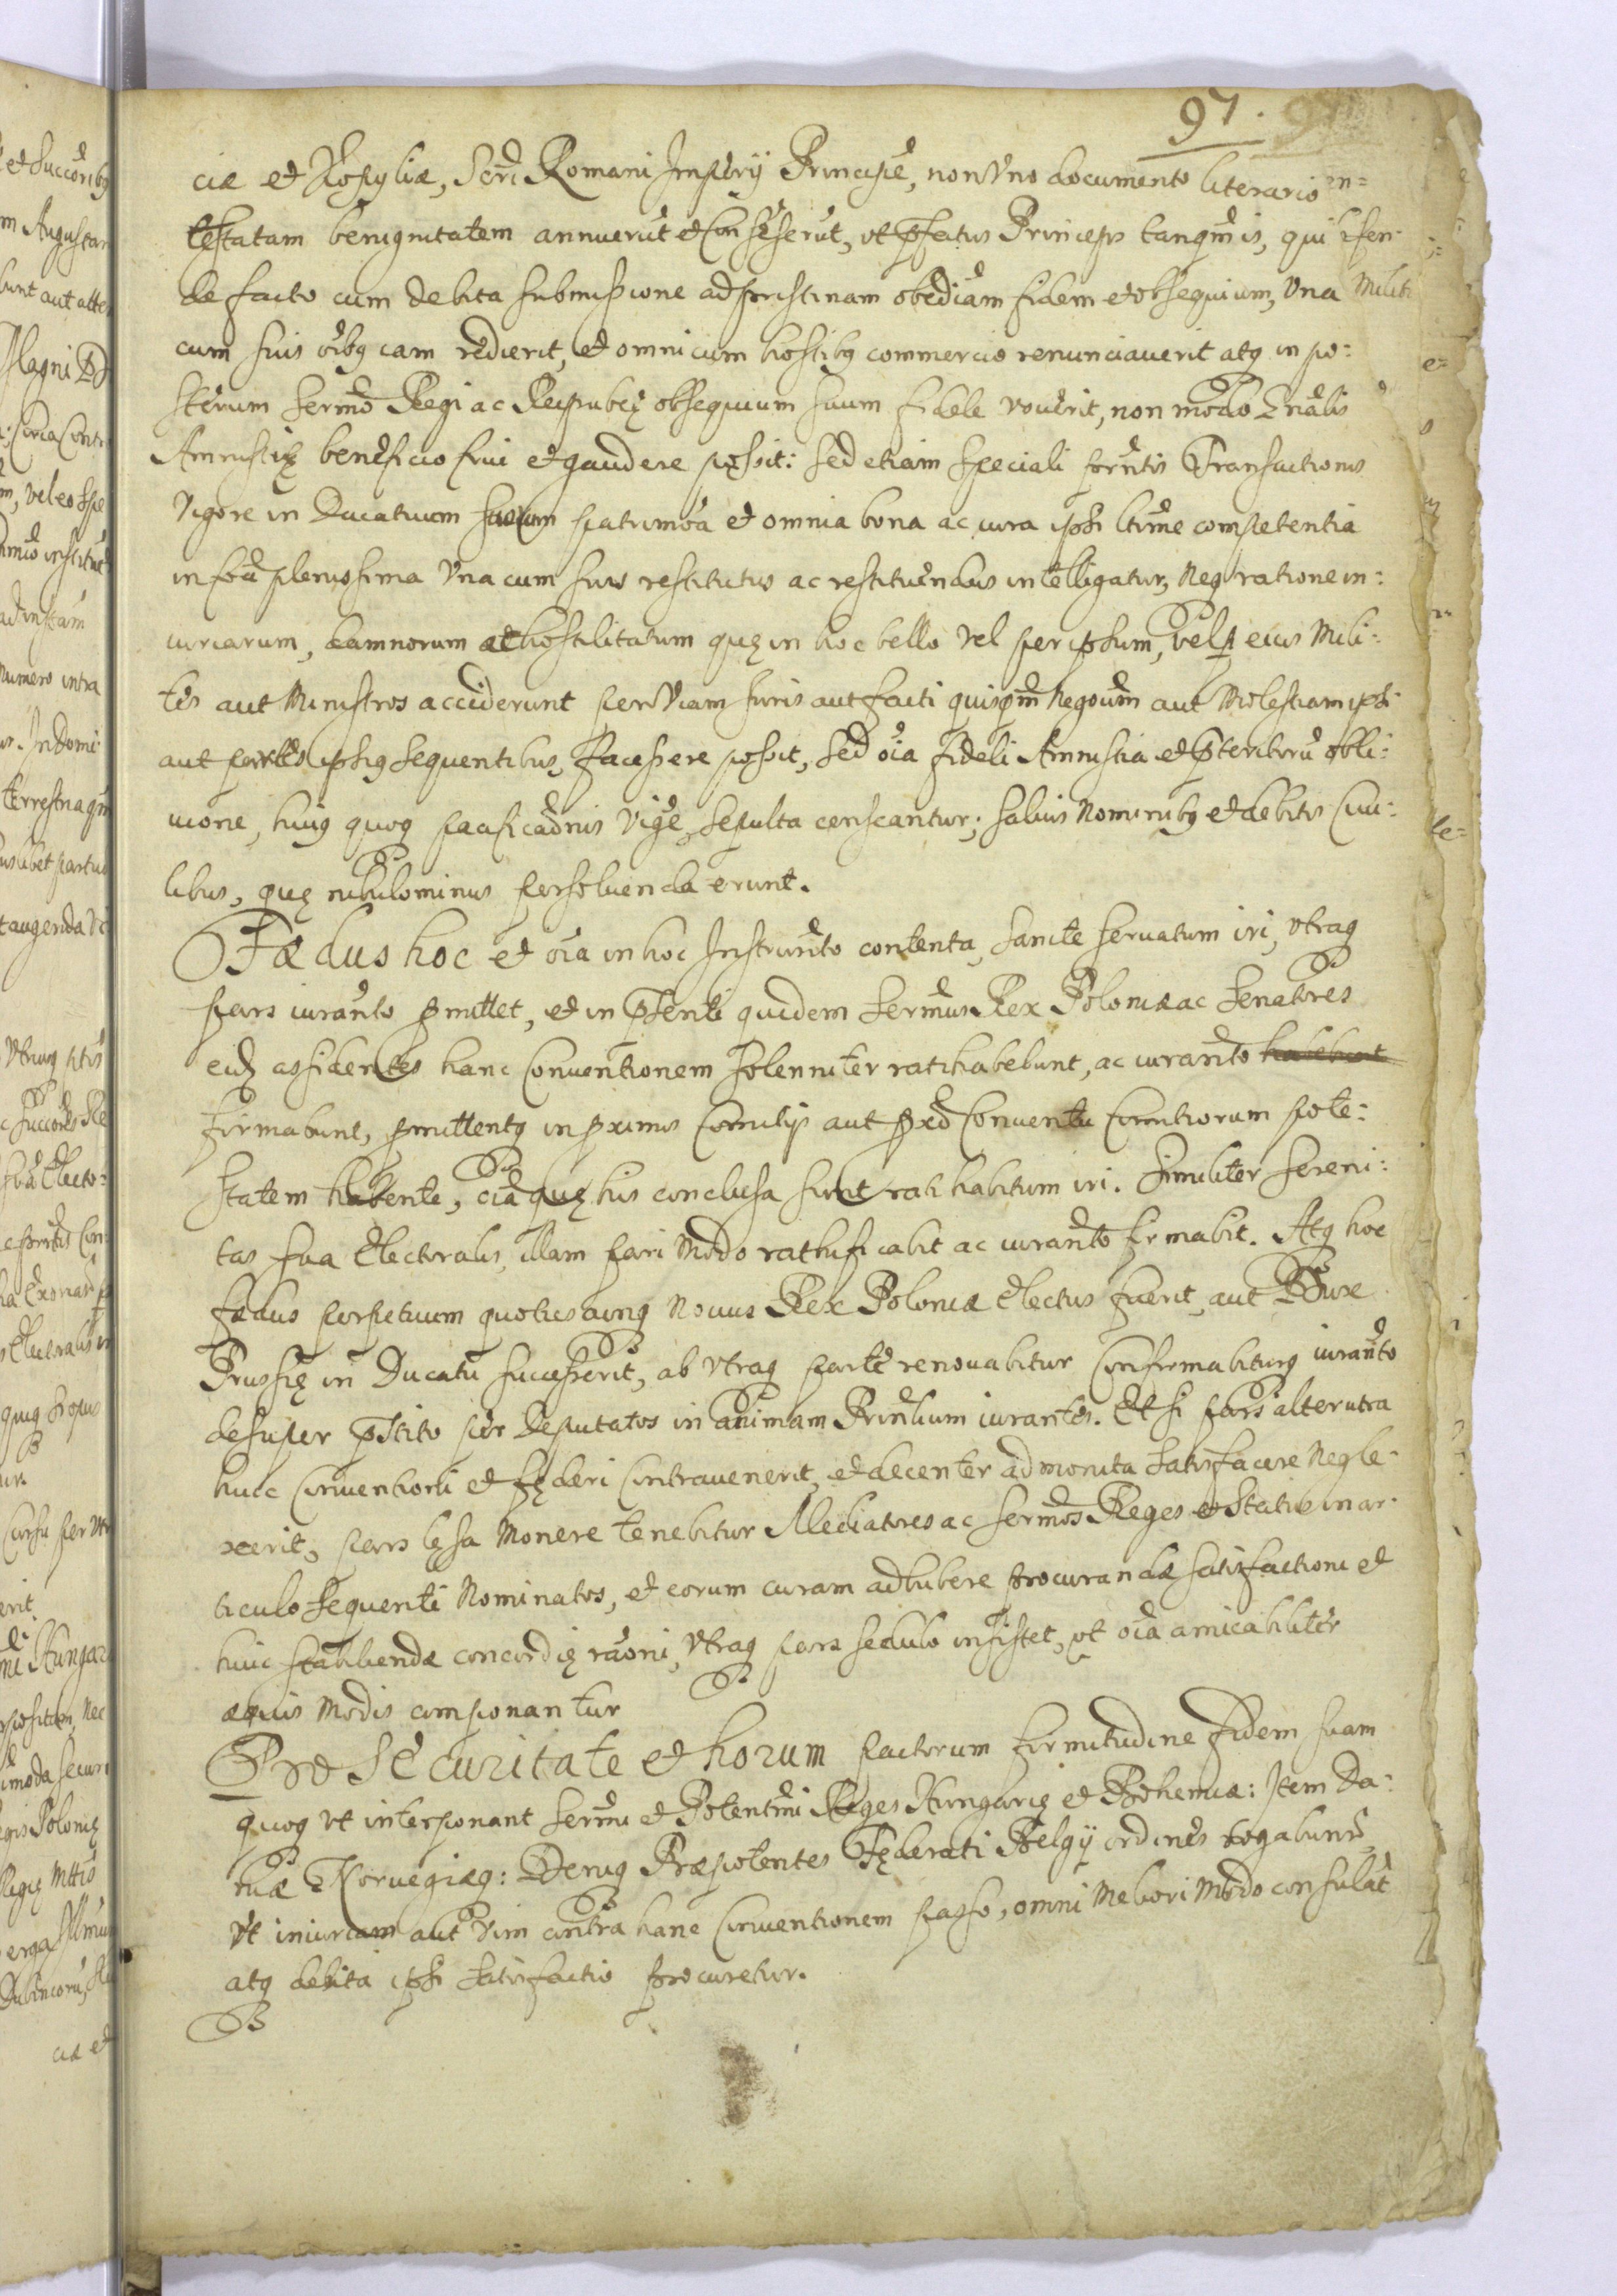 97.
ciæ et Kopyliæ, Scri Romani Imperij Principe, non Vno documento literario
testatam benignitatem annuerūt et Consēserūt, vt p̄fatus Princeps tanqm̄ is, qui
de facto cum debita submissione ad pristinam obediām fidem et obsequium, Vna
cum suis oībq iam redierit, et omni cum hostibq commercio renunciauerit atq in po:
sterum Sermo Regi ac Reipubcę obsequium suum fidele vouerit, non modo Gnālis
Amnistię beneficio frui et gaudere possit: sed etiam speciali prntis Transactionis
Vigore in Ducatuum suum patrimoa et omnia bona ac iura ipsi ltime competentia
in foa plenissima Vna cum suis restitutus ac restituendus intelligatur, Neq ratione in:
iuriarum, damnorum et hostilitatum quę in hoc bello vel per ipsum, vel p eius Mili:
tes aut Ministros acciderunt per Viam Iuris aut facti quispm Negoium aut Molestiam ipsi
aut partes ipsiq sequentibus, facessere possit, sed oīa fideli Amnistia et p̄teritorū obli:
uione, huiq quoq pacificaōnis Vige, sepulta censeantur; saluis Nominibq et debitis Ciui:
libus, quę nihilominus persoluenda erunt.
Fædus hoc et oīa in hoc Instrumto contenta, sancte seruatum iri, vtraq
pars iuramto pmittet, et in p̄senti quidem Sermus Rex Poloniæ ac Senatores
eidę assidentes hanc Conuentionem solenniter ratihabebunt, ac iuramto habebunt
firmabunt, pmittentq in pximis Comitijs aut pxo Conuentu Comitiorum pote:
statem habente, oīa quę his conclusa sunt rati habitum iri. Similiter Sereni:
tas sua Electoralis, illam pari Modo rathificabit ac iuramto firmabit. Atq hoc
fædus perpetuum quotiescunq Nouus Rex Poloniæ Electus fuerit, aut Dux
Prussię in Ducatu successerit, ab vtraq parte renouabitur Confirmabiturq iuramto
desuper p̄stito per Deputatos in animam Prinlium iurantes. Et si pars alterutra
huic Conuentioni et fęderi Contrauenerit, et decenter admonita satisfacere Negle:
xerit, pars lęsa Monere tenebitur Mediatores ac Sermos Reges et Status in ar:
ticulo sequenti Nominatos, et eorum curam adhibere procurandæ satisfactioni et
huic stabiliendæ concordię raōni, Vtraq pars sedulo insistet, vt oīa amicabiliter
æquis Modis componantur
Pro Securitate et horum pactorum firmitudine fidem suam
quoq vt interponant Sermi et Potentmi Reges Hungarię et Bohemiæ: Item Da:
niæ Norvegiæq: Deniq Præpotentes Fęderati Belgij ordines rogabunr
vt iniuriam aut vim contra hanc Conuentionem passo, omni Meliori Modo consulāt
atq debita ipsi satisfactio procuretur.